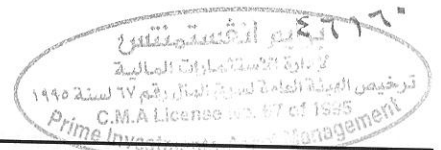 ٤٦١٦
برايم انفستمنتس
لإدارة الاستثمارات المالية
ترخيص الهيئة العامة لسوق المال رقم ٦٧ لسنة ١٩٩٥
C.M.A License No. 67 of 1995
Prime Investments Management